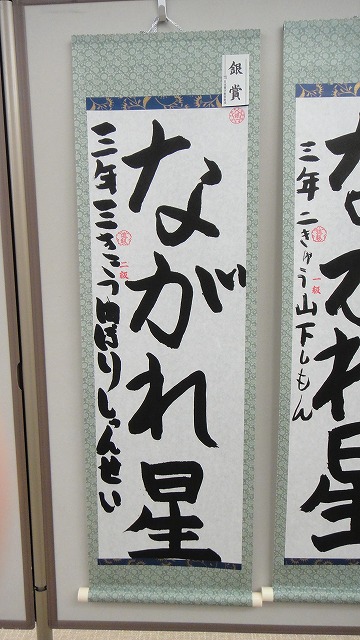 銀賞
ながれ星
三年 三きゅう
ほりしゅんせい
二級
ながれ星
三年 二きゅう 山下しもん
一級